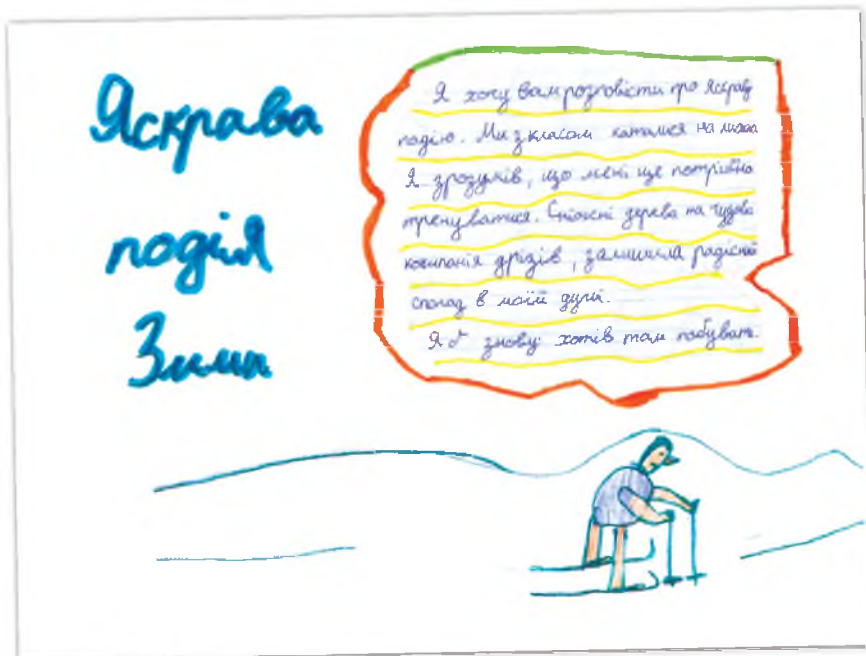 Яскрава
подія
Зими
Я хочу вам розповісти про яскраву
подію. Ми з класом каталися на лижах
Я зрозумів, що мені ще потрібно
тренуватися. Сніжні дерева та чудова
компанія друзів, залишила радісний
спогад в моїй душі.
Я б знову хотів там побувать.